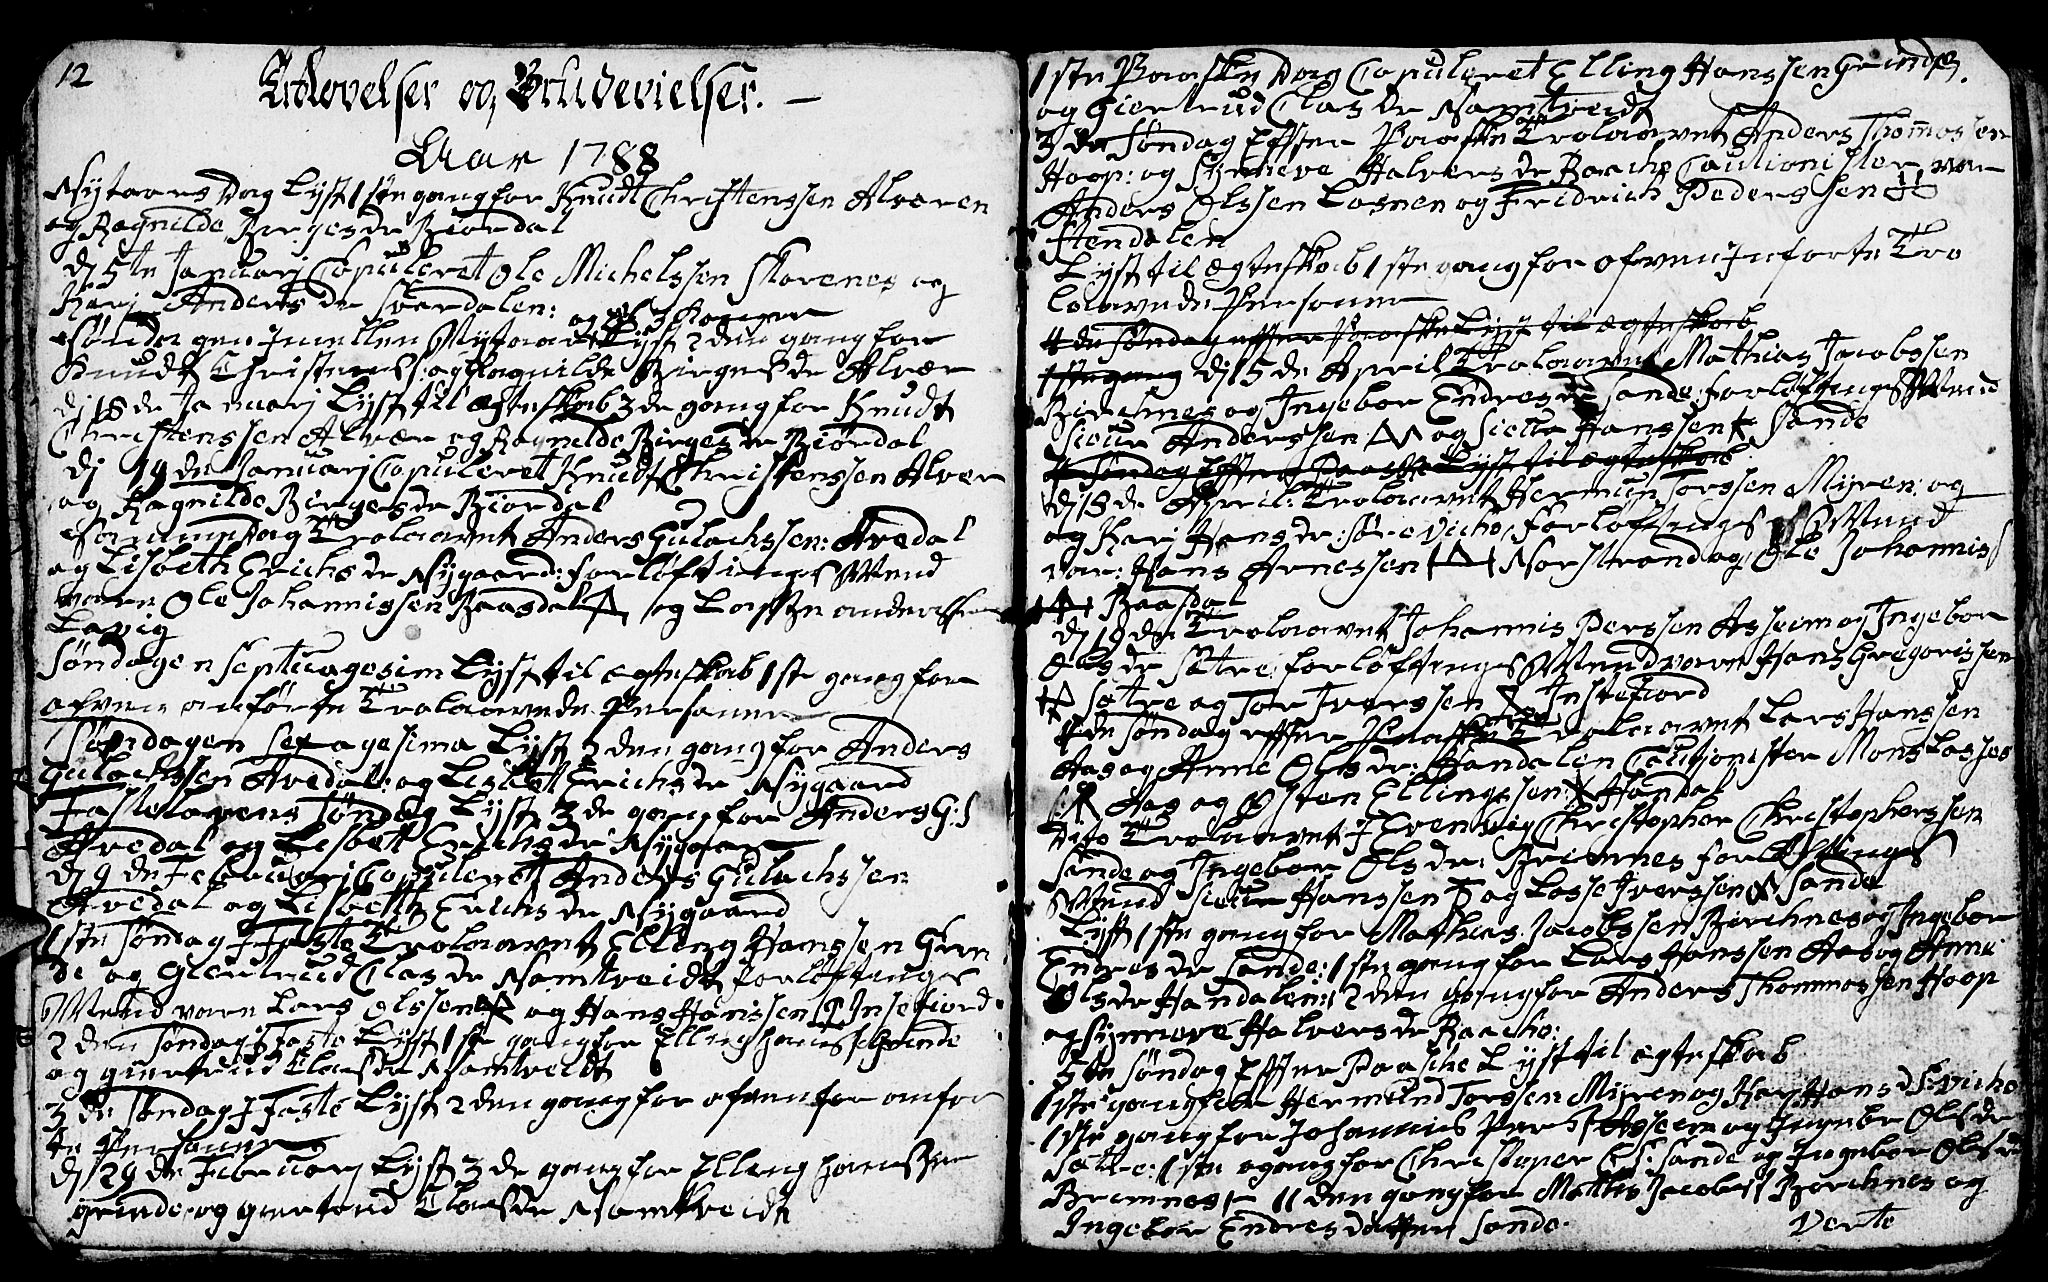 12
Trolovelser og Brudevielser. —
Aar 1788
Nytaars Dag Lyst 1ste gang for Knudt Christenssen Alveren
og Ragnilde Birgesdr Biordal
dj 5te Januarj Copuleret Ole Michelssen Skorenes og
Karj Andersdr Svardalen:
Sønda gen Jmellem Nytaar og Lyst 2den gang for
Knudt Christens: og Ragnilde Birgesdr Alvær
dj 18de Januarj Lyst til Egteskab 3de gang for Knudt
Christenssen Alvær og Ragnilde Birgesdr Biørdal
dj 19de Januarj Copuleret Knudt Christenssen Alver
og Ragnilde Birgesdr Biordal
Samme dag Trolaavet Anders Gulachssen: Avedal
og Lisbeth Erichsdr Nygaard: forløftings Mænd
vare Ole Johannissen Baasdal og Lasse anderssen
Lavig
Søndagen Septuagesim Lyst til egteskab 1ste gang for
ofven anførte Trolaavede Personer
Søndagen Sexagesima Lyst 2den gang for Anders
Gulachssen Avedal: og Lisbet Erichsdr Nygaard
Fastelavens Søndag Lyst 3de gang for Anders G:S
Avedal og Lisbett Erichsdr Nygaar
dj 9de Februarj Copuleret Anders Gulachssen
Avedal og Lisbeth Erichsdr Nygaard
1ste Søndag J Faste Trolaavet Elling Hanssen Grin
de og Giertrud Clasdr Namtveidt forløftings
Mænd vare Lars Olssen og Hans Hanssen Insefiord
2den Søndag J Faste Lyst 1ste gang for Elling hanss Grinde
og giertrud Clasdr Namtveidt
3de Søndag J Faste Lyst 2den gang for ofvenfor anfør
te Personer
dj 29de Februarj Lyst 3de gang for Elling hanssen
grinde og giertrud Clasdr Namtveidt
1ste Paaske Dag Copuleret Elling Hanssen Grinde
og Giertrud Clasdr Namtveidt
3de Søndag Effter Paaske Trolaavet Anders Thomassen
Hoop: og Synneve Halversdr Raachs Cautionister var
Anders Olssen Losnen og Fridrich Pederssen
Stendalen
Lyst til Egteskab 1ste gang for ofven Jnførte Tro
laavede Personer
4de Søndag effter Paaske Lyst til egteskab
1ste gang dj 15de April Trolaavet Mathias Jacobssen
Birchnes og Ingebor Endresdr Sande: forløftings Mænd
Siour Anderssen og Siour Hanssen Sande
4 Søndag Effter Paaske Lyst til egteskab
dj 18de April: Trolaavet Hermun Torssen Myren: og
og Karj Hansdr: Forløftings Mænd
var: Hans Arnessen Norstrand og Ole Johannis
Baasdal
dj 19de Trolaavet Johannis Perssen Asheim og Ingebor
Olsdr Sætre: forløftings Mænd vare Hans Gregorissen
Sætre og Tor Iverssen Instefiord
4de Søndag effter Paaske Trolaavet Lars Hanssen
Aas og Anne Olsdr: Handalen Cautionister Mons Lasses
Aas og Østen Ellingssen Handal
dito Trolaavet J Evenvig Christopher Christopherssen
Sande og Ingebor Olsdr: Brimnes forløftings
Mænd Siour Hanssen og Lasse Iverssen Sande
Lyst 1ste gang for Mathias Jacobssen Birchnes og Ingebor
Endresdr Sande: 1ste gang for Lars Hanssen Aas og Anne
Olsdr Handalen: 2den gang for Anders Thommassen Hoop
og Synneve Halversdr Raachs:
5te Søndag Effter Paaske Lyst til egteskab
1ste gang for Hermund Torssen Myren og Karj Hansd
1ste gang for Johannis Pers Asheim og Ingebr Olsdr
Sætre: 1ste gang for Christoper Chs: Sande og Ingebor Olsdr
Brimnes — 11den gang for Mathis Jacobss Birchnes og
Ingebor Endresdatter Sande.
Verte